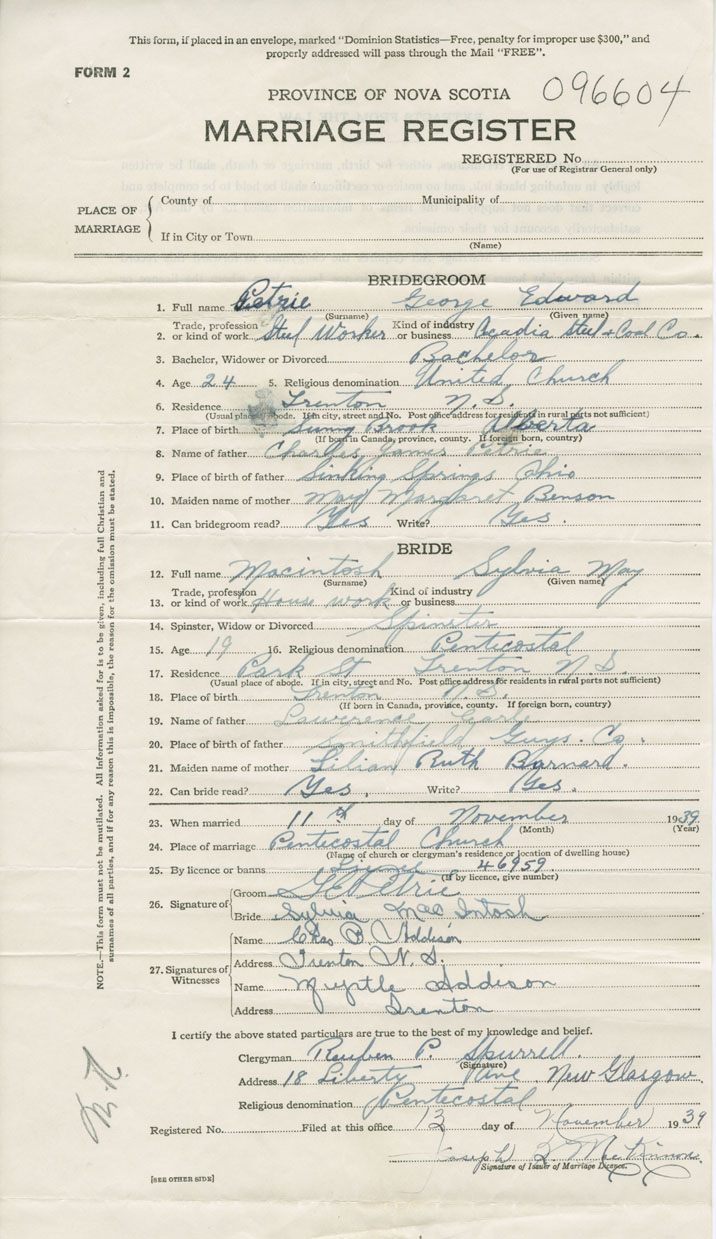 This form, if placed in an envelope, marked "Dominion Statistics—Free, penalty for improper use $300," and
properly addressed will pass through the Mail "FREE".
FORM 2
PROVINCE OF NOVA SCOTIA 096604
MARRIAGE REGISTER
REGISTERED No.
(For use of Registrar General only)
PLACE OF MARRIAGE
County of Municipality of
If in City or Town
(Name)
BRIDEGROOM
1. Full name Petrie George Edward
(Surname) (Given name)
2. Trade, profession or kind of work Steel Worker Kind of industry or business Acadia Steel & Coal Co.
3. Bachelor, Widower or Divorced Bachelor
4. Age 24 5. Religious denomination United Church
6. Residence Trenton N.S.
(Usual place of abode. If in city, street and No. Post office address for residents in rural parts not sufficient)
7. Place of birth Sunny Brook Alberta
(If born in Canada, province, county. If foreign born, country)
8. Name of father Charles James Petrie
9. Place of birth of father Sinking Springs Ohio
10. Maiden name of mother May Margaret Benson
11. Can bridegroom read? Yes Write? Yes.
BRIDE
12. Full name Macintosh Sylvia May
(Surname) (Given name)
13. Trade, profession or kind of work House work Kind of industry or business
14. Spinster, Widow or Divorced Spinster
15. Age 19 16. Religious denomination Pentecostal
17. Residence Park St Trenton N.S.
(Usual place of abode. If in city, street and No. Post office address for residents in rural parts not sufficient)
18. Place of birth Trenton N.S.
(If born in Canada, province, county. If foreign born, country)
19. Name of father Lawerence
20. Place of birth of father Smithfield Guys. Co.
21. Maiden name of mother Lilian Ruth Barnard.
22. Can bride read? Yes. Write? Yes.
23. When married 11th day of November 1939
(Month) (Year)
24. Place of marriage Pentecostal Church
(Name of church or clergyman's residence or location of dwelling house)
25. By licence or banns 46959
(If by licence, give number)
26. Signature of
Groom G E Petrie
Bride Sylvia MacIntosh
27. Signatures of Witnesses
Name Chas B Addison
Address Trenton N.S.
Name Myrtle Addison
Address Trenton
I certify the above stated particulars are true to the best of my knowledge and belief.
Clergyman Reuben P. Spurrell.
(Signature)
Address 18 Liberty New Glasgow.
Religious denomination Pentecostal
Registered No. Filed at this office 13 day of November 1939
Joseph MacKinnon.
Signature of Issuer of Marriage Licence.
[SEE OTHER SIDE]
NOTE.—This form must not be mutilated. All information asked for is to be given, including full Christian and
surnames of all parties, and if for any reason this is impossible, the reason for the omission must be stated.